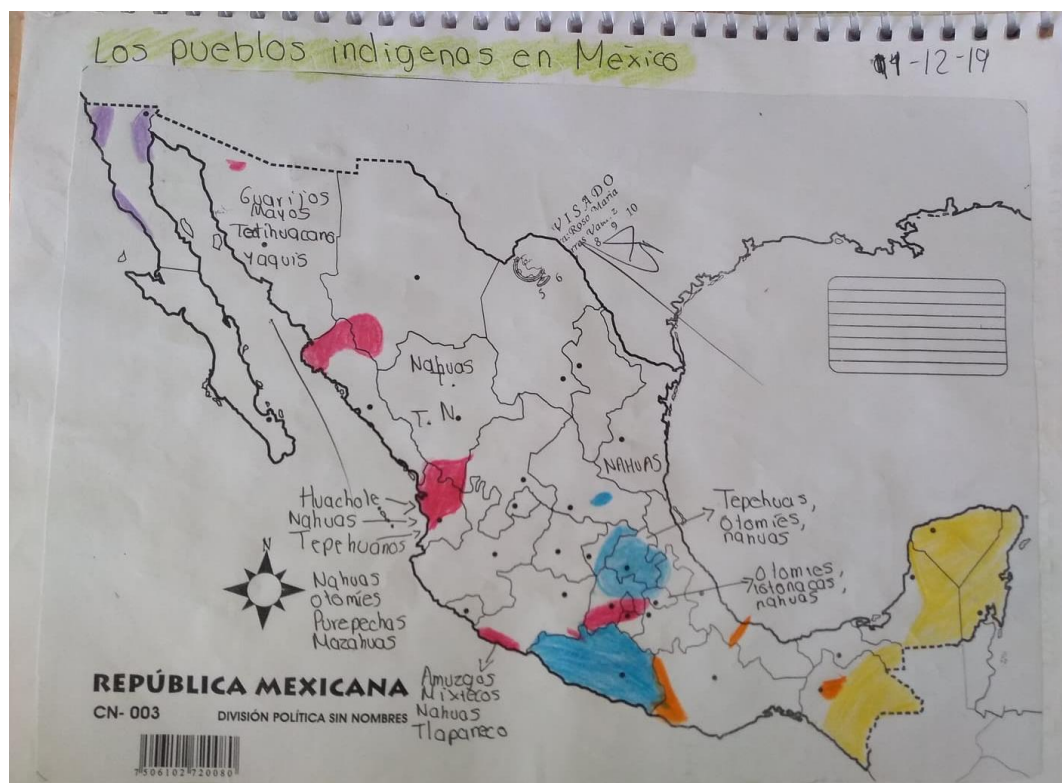 Los pueblos indigenas en México
11-12-19
Guarijos
Mayos
Tetihuacano
yaquis
VISADO
Rosa Maria
8 9 10
5 6
Nahuas
T. N.
NAHUAS
Huachole
Nahuas
Tepehuanos
Tepehuas,
Otomíes,
nahuas
Otomies,
nahuas
N
Nahuas
Otomíes
Purepechas
Mazahuas
Amuzgos
Mixtecos
Nahuas
Tlapaneco
REPÚBLICA MEXICANA
CN- 003
DIVISIÓN POLÍTICA SIN NOMBRES
7506102720080